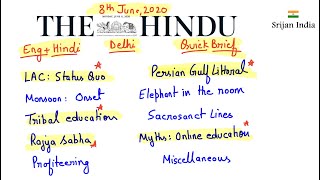 8th June, 2020
THE HINDU
Srijan India
Eng + Hindi
Delhi
Quick Brief
LAC: Status Quo
Monsoon: Onset
Tribal education
Rajya sabha
Profiteering
Persian Gulf Littoral
Elephant in the room
Sacrosanct Lines
Myths: Online education
Miscellaneous